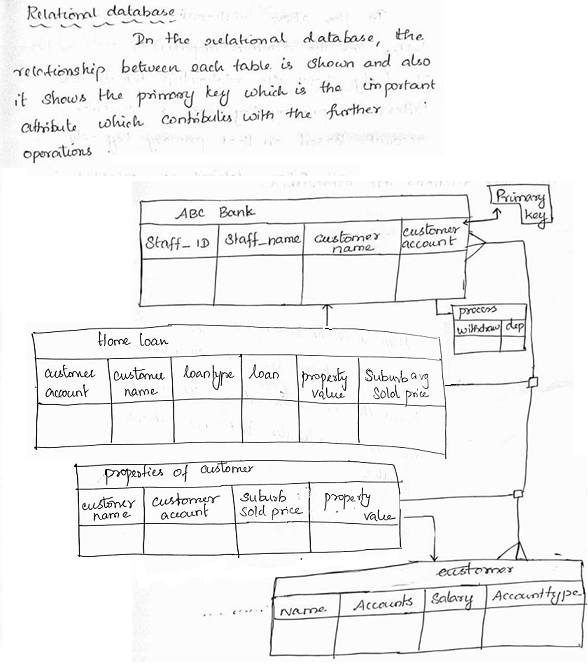 Relational database:
In the relational database, the
relationship between each table is shown and also
it shows the primary key which is the important
attribute which contributes with the further
operations.
Primary
key
ABC Bank
Staff_ID Staff_name customer name customer account
process
withdraw dep
Home loan
customer account customer name loantype loan property value Suburb avg Sold price
properties of customer
customer name customer account suburb sold price property value
customer
Name Accounts Salary Accounttype